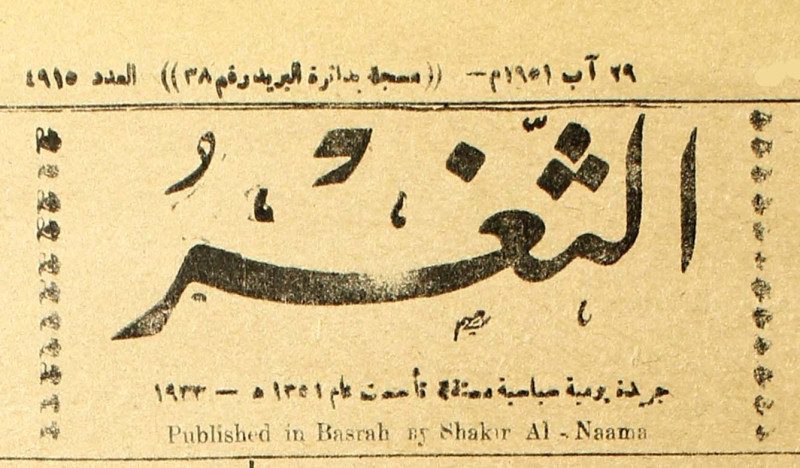 ٢٩ آب ١٩٥١م - ((مسجلة بدائرة البريد رقم ٣٨)) العدد ٤٩١٥
الثَّغْرُ
جريدة يومية سياسية مستقلة تأسست عام ١٣٥١ ه — ١٩٣٣
Published in Basrah By Shakir Al - Naama